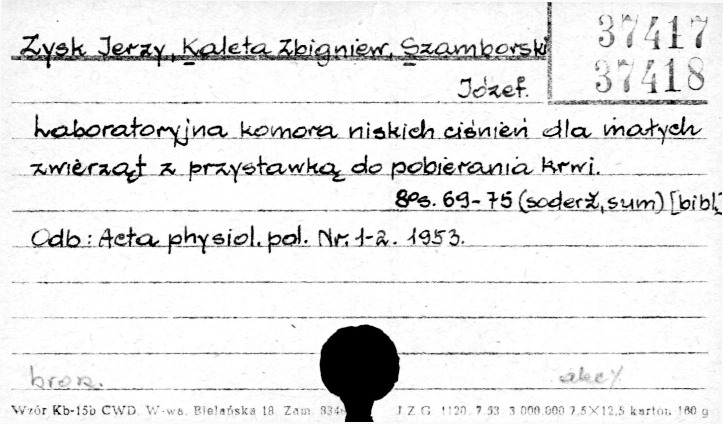 37417
37418
Zysk Jerzy, Kaleta Zbigniew, Szamborski
Józef.
Laboratoryjna komora niskich ciśnień dla małych
zwierząt z przystawką do pobierania krwi.
8°s. 69-75 (soderž, sum) [bibl.]
Odb: Acta physiol. pol. Nr. 1-2. 1953.
brosz.
Wzór Kb-15b CWD. W-wa, Bielańska 18 Zam. J Z G 1120 7.53 3 000 000 7,5×12,5 karton 160 g